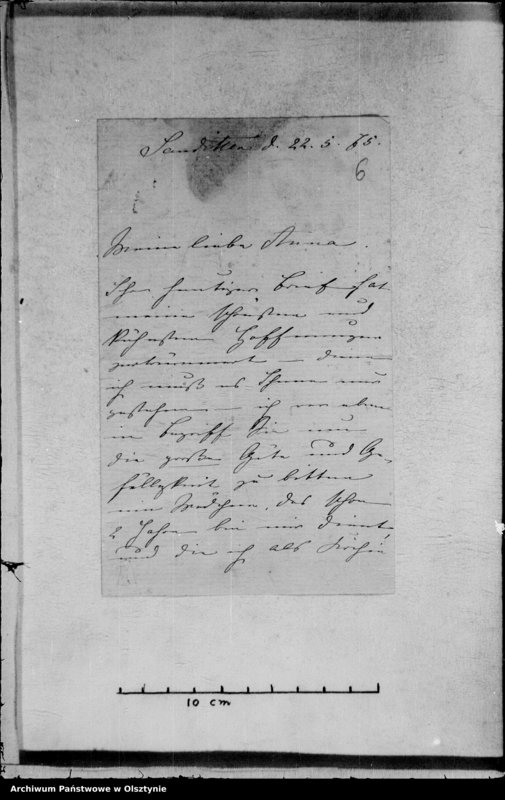 Sanditten d. 22. 5. 65.
6
Meine liebe Anna.
Ihr heutiger Brief hat
meine schönsten und
kühnsten Hoffnungen
zertrümmert – denn
ich muß es Ihnen nur
gestehen – ich war eben
im Begriff Sie um
die große Güte und Ge-
fälligkeit zu bitten
ein Mädchen, das schon
2 Jahre bei mir dient
und die ich als Köchin
10 cm
Archiwum Państwowe w Olsztynie